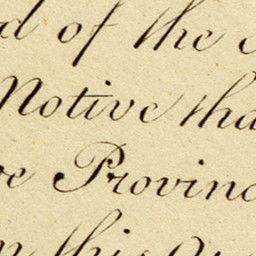 d of the
Motive tha
ve Provinc
this